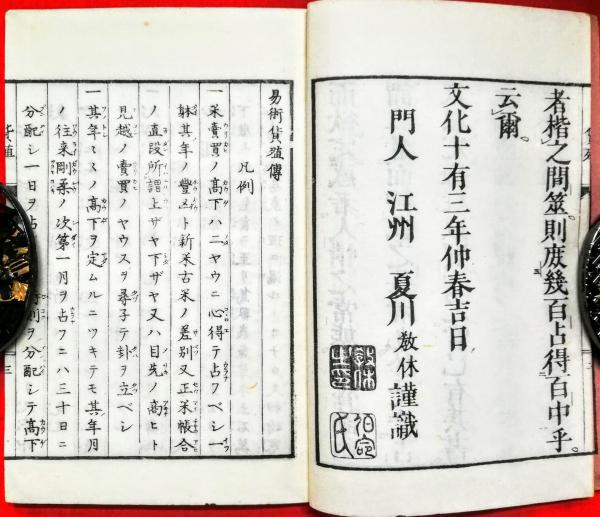 者楷之間筮則庶幾百占得百中乎
云爾
文化十有三年仲春吉日
門人 江州 夏川 敎休 謹識
易術貨殖傳
凡例
一米賣買ノ高下ハ二ヤウニ心得テ占フベシ一
躰其年ノ豐凶ト新米古米ノ差別又正米帳合
ノ直段所謂上ザヤ下ザヤ又ハ目先ノ高ヒト
見越ノ賣買ノヤウスヲ尋子テ卦ヲ立ベシ
一其年ミスノ高下ヲ定ムルニツキテモ其年月
ノ往来剛柔ノ次第一月ヲ占フニハ三十日ニ
分配シ一日ヲ占 時刻ヲ分配シテ高下